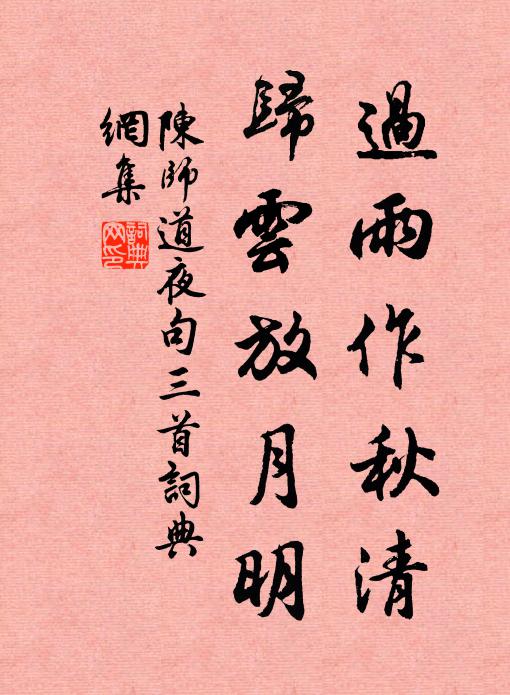 過雨作秋清
歸雲放月明
陳師道夜句三首詞典
網集
詞典
网印